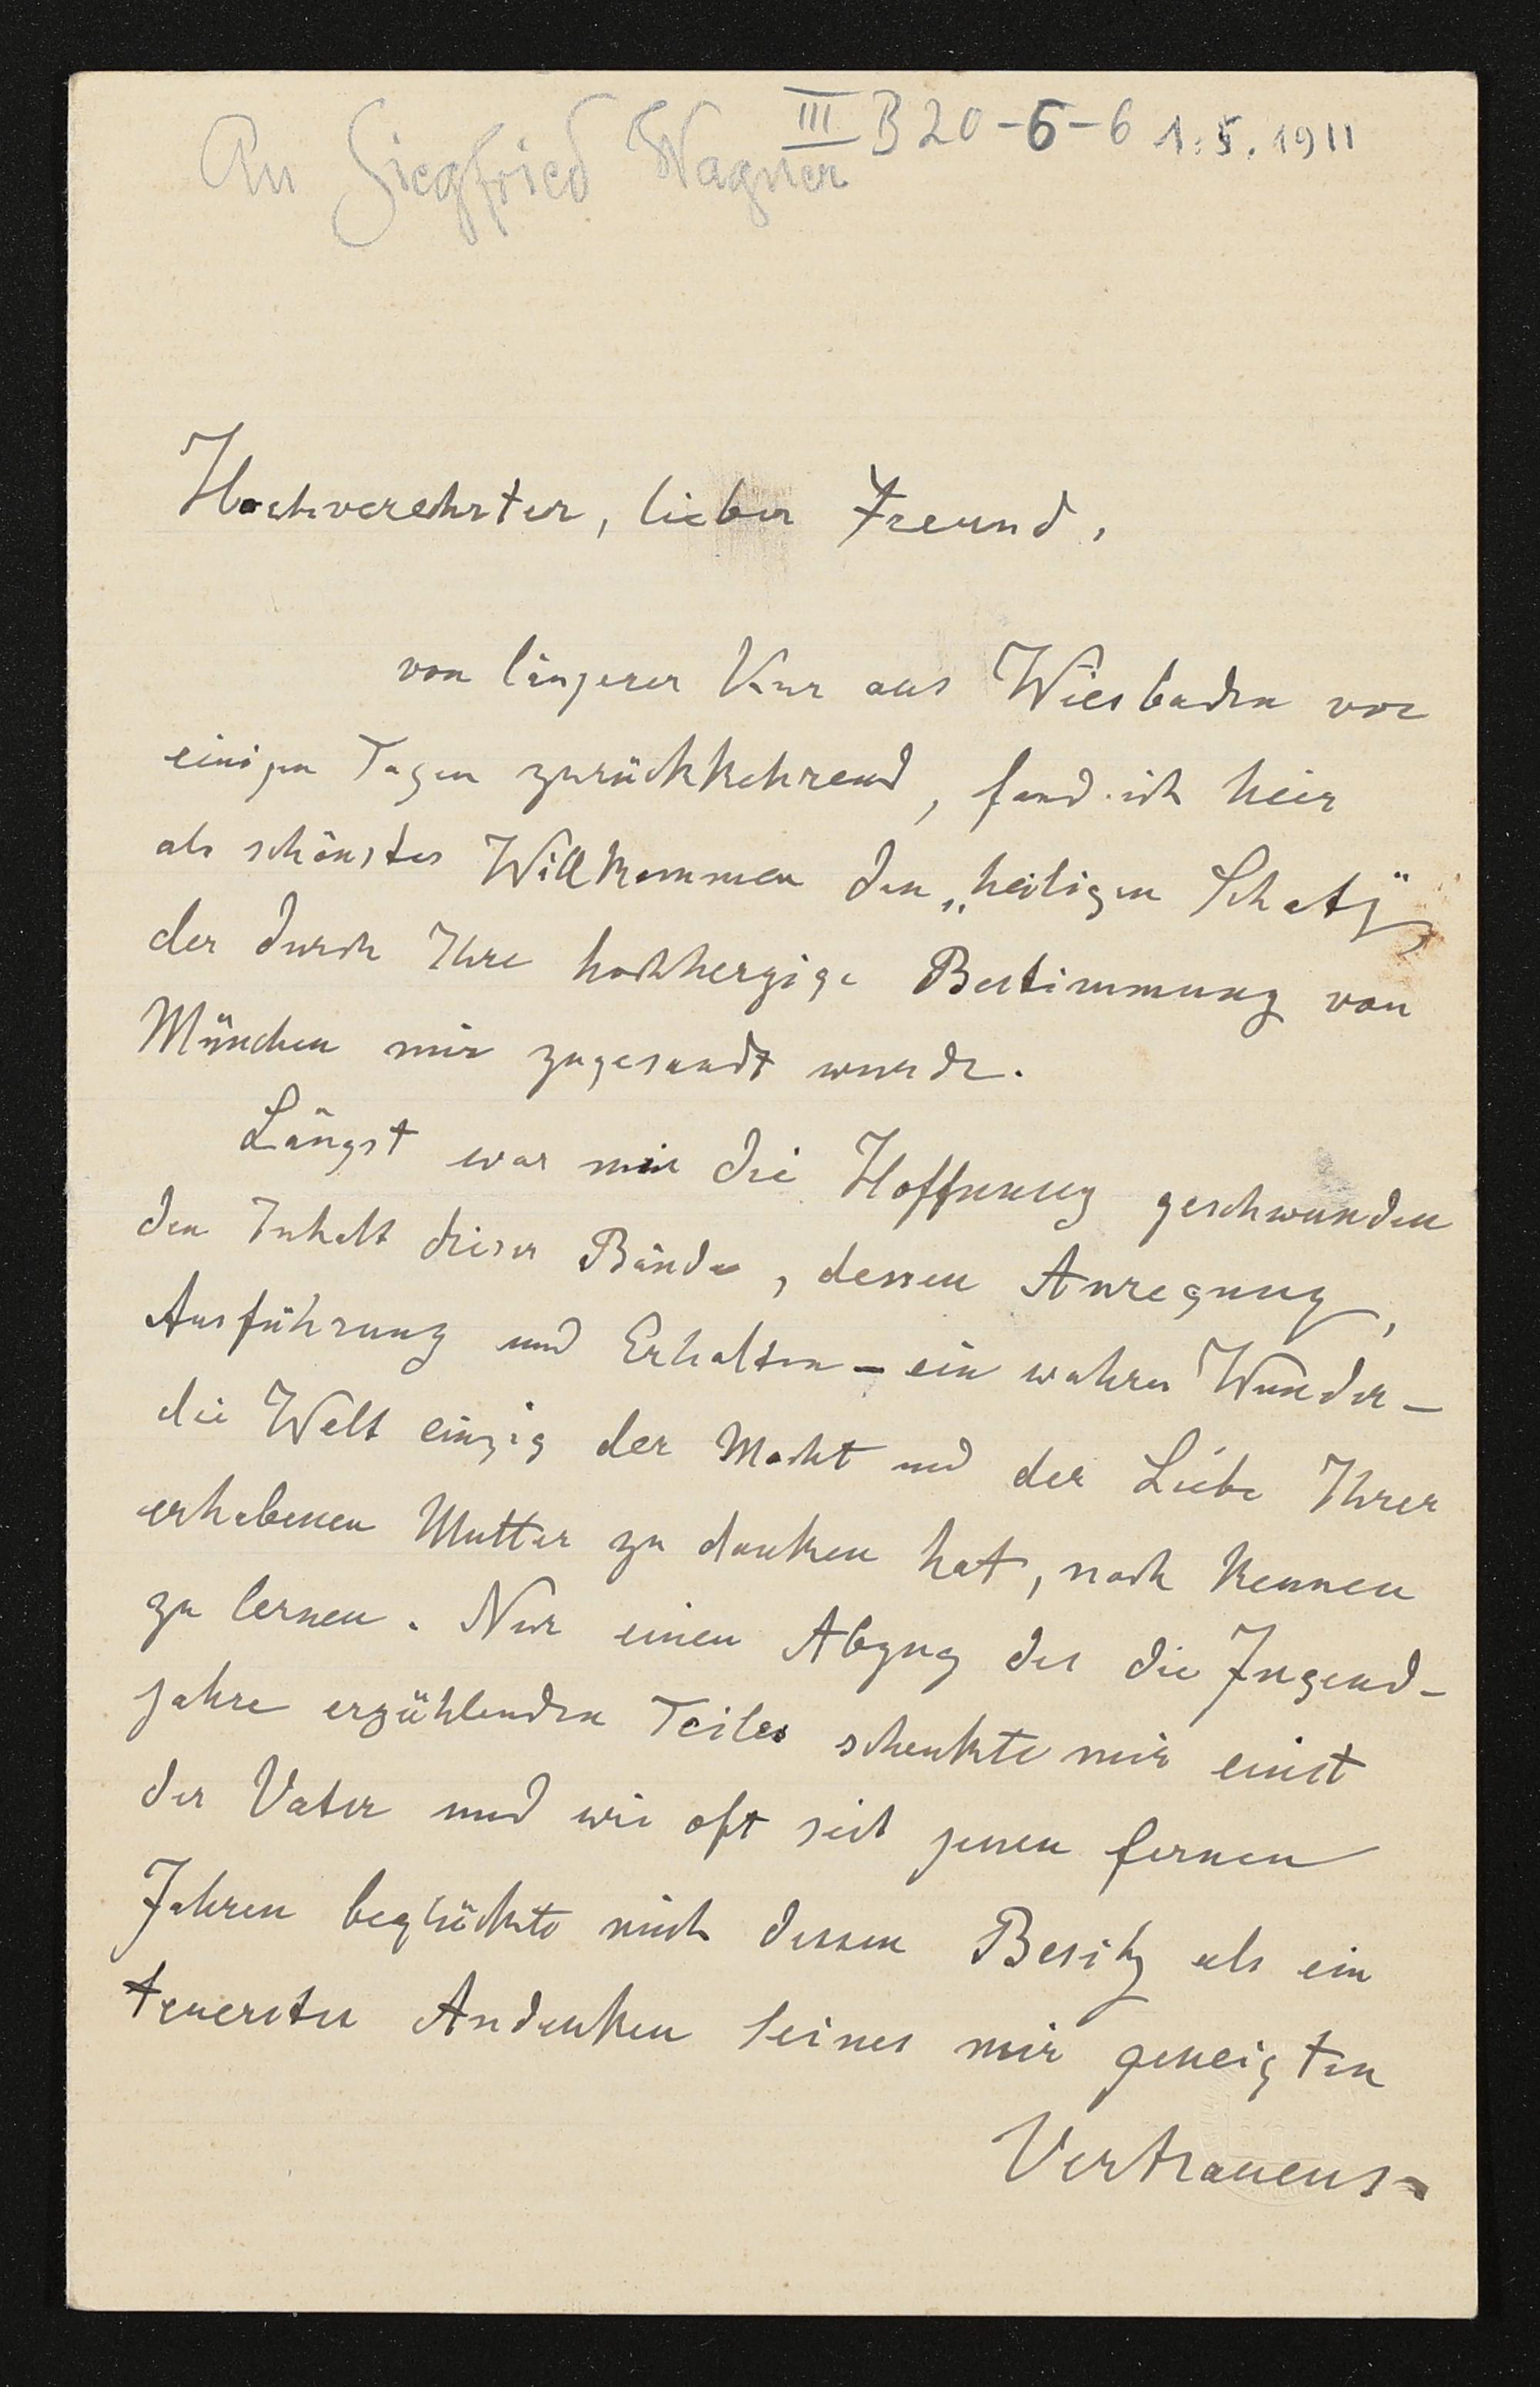 III B 20-6-6 1.5.1911
An Siegfried Wagner
Hochverehrter, lieber Freund,
von längerer Kur aus Wiesbaden vor
einigen Tagen zurückkehrend, fand ich hier
als schönstes Willkommen den „heiligen Schatz“,
der durch Ihre hochherzige Bestimmung von
München mir zugesandt wurde.
Längst war mir die Hoffnung geschwunden
den Inhalt dieser Bände, dessen Anregung,
Ausführung und Erhalten – ein wahres Wunder –
die Welt einzig der Macht und der Liebe Ihrer
erhabenen Mutter zu danken hat, noch kennen
zu lernen. Nur einen Abzug des die Jugend-
jahre erzählenden Teiles schenkte mir einst
der Vater und wie oft seit jenen fernen
Jahren beglückte mich dessen Besitz als ein
teuerstes Andenken seines mir geneigten
Vertrauens –